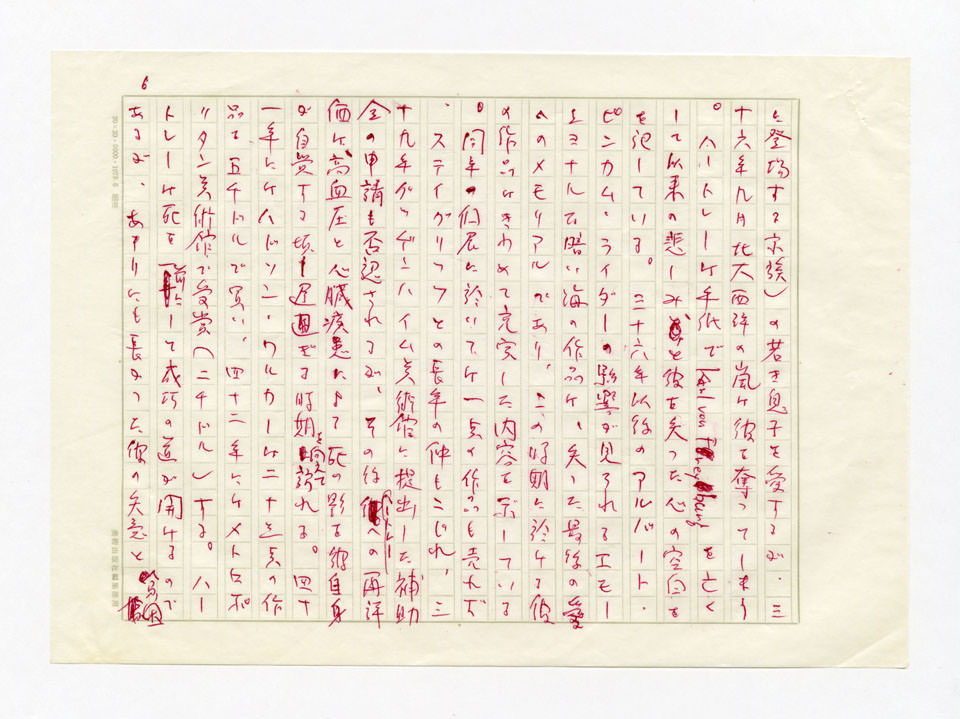 6
に登場する京族)の若き息子を愛するが、三
十六年九月北大西洋の嵐は彼を奪ってしまう
。ハートレーは手紙で を亡く
して以来の悲しみと彼を失った心の空白を
を記している。三十六年以後のアルバート・
ピンカム・ライダーの影響が見られるエモー
ショナルで暗い海の作品は、失った最後の愛
へのメモリアルであり、この時期に於ける彼
の作品はきわめて充実した内容を示している
。同年の個展に於いては一点の作品も売れず
、スティグリッツとの長年の仲もこじれ、三
十九年グッゲンハイム美術館に提出した補助
金の申請も否認されるが、その後ハートレーへの再評
価は、高血圧と心臓疾患によって死の影を彼自身
が自覚する頃、遅過ぎる時期を向えて訪れる。四十
一年にはハドソン・ワルカーは二十三点の作
品を五千ドルで買い、四十二年にはメトロポ
リタン美術館で受賞(二千ドル)する。ハー
トレーは死を前にして成功の道が開けるので
あるが、あまりにも長かった彼の失意と貧困
20×20